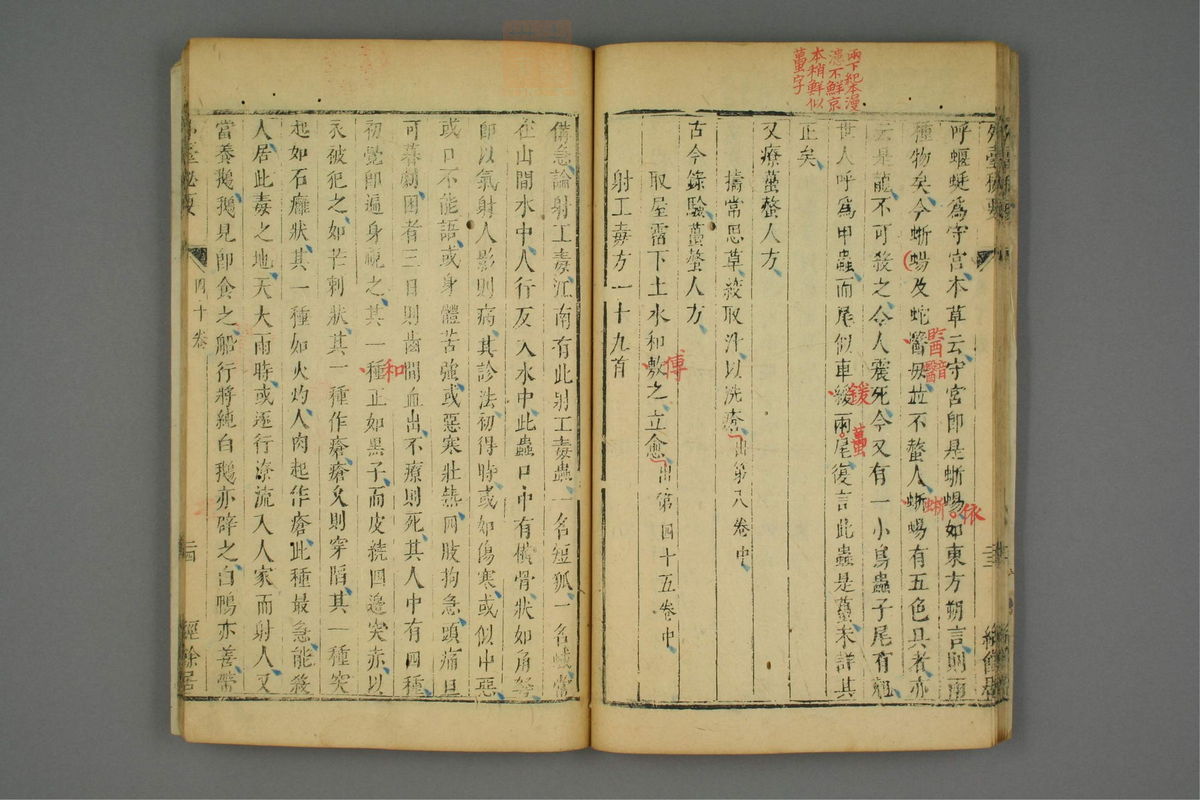 兩下紀本漫
漶不鮮京
本稍鮮似
蠆字
呼蝘蜓為守宮本草云守宮即是蜥蜴如東方朔言則兩
種物矣今蜥蜴及蛇醫毋並不螫人蜥蜴有五色具者亦
云是龍不可殺之令人震死今又有一小鳥蟲子尾有
世人呼為甲蟲而尾似車緩兩尾復言此蟲是蠆未詳其
正矣
又療蠆螫人方
擣常思草絞取汁以洗瘡出第八卷中
古今錄驗蠆螫人方
取屋霤下土水和敷之立愈出第四十五卷中
射工毒方一十九首
醫
醫
依
蜥
鍰
蠆
傅
二十三
經餘居
備急論射工毒江南有此射工毒蟲一名短狐一名蜮常
在山間水中人行及入水中此蟲口中有橫骨狀如角弩
即以氣射人影則病其診法初得時或如傷寒或似中惡
或口不能語或身體苦強或惡寒壯熱四肢拘急頭痛旦
可暮劇困者三日則齒間血出不療則死其人中有四種
初覺即遍身視之其一種正如黑子而皮繞四邊突赤以
衣被犯之如芒刺狀其一種作瘡瘡久則穿陷其一種突
起如石癰狀其一種如火灼人肉起作瘡此種最急能殺
人居此毒之地天大雨時或逐行潦流入人家而射人又
當養鵝鵝見即食之船行將純白鵝亦辟之白鴨亦善螫
和
外臺秘要
四十卷
二十四
經餘居